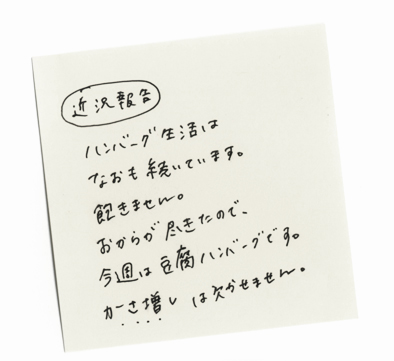 近況報告
ハンバーグ生活は
なおも続いています。
飽きません。
おからが尽きたので、
今週は豆腐ハンバーグです。
かさ増しは欠かせません。